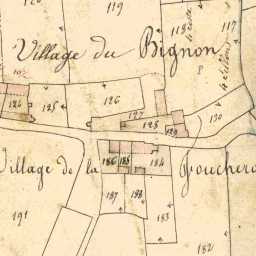 119
118
117
Village du Bignon
P
124
125
126
127
128
129
130
Village de la Fouchero
186
185
184
187
188
183
191
182